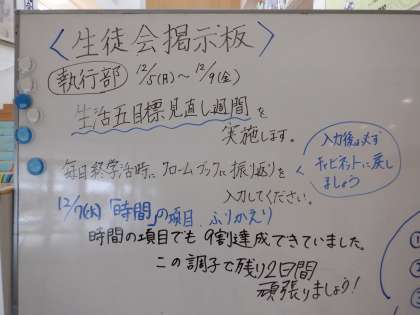 〈生徒会掲示板〉
執行部 12/5(月)～12/9(金)
生活五目標見直し週間を
実施します。
毎日終学活時にクロームブックに振り返りを
入力してください。
入力後は必ず
キャビネットに戻し
ましょう
12/7(水)「時間」の項目 ふりかえり
時間の項目でも9割達成できていました。
この調子で残り2日間
頑張りましょう!
①
②